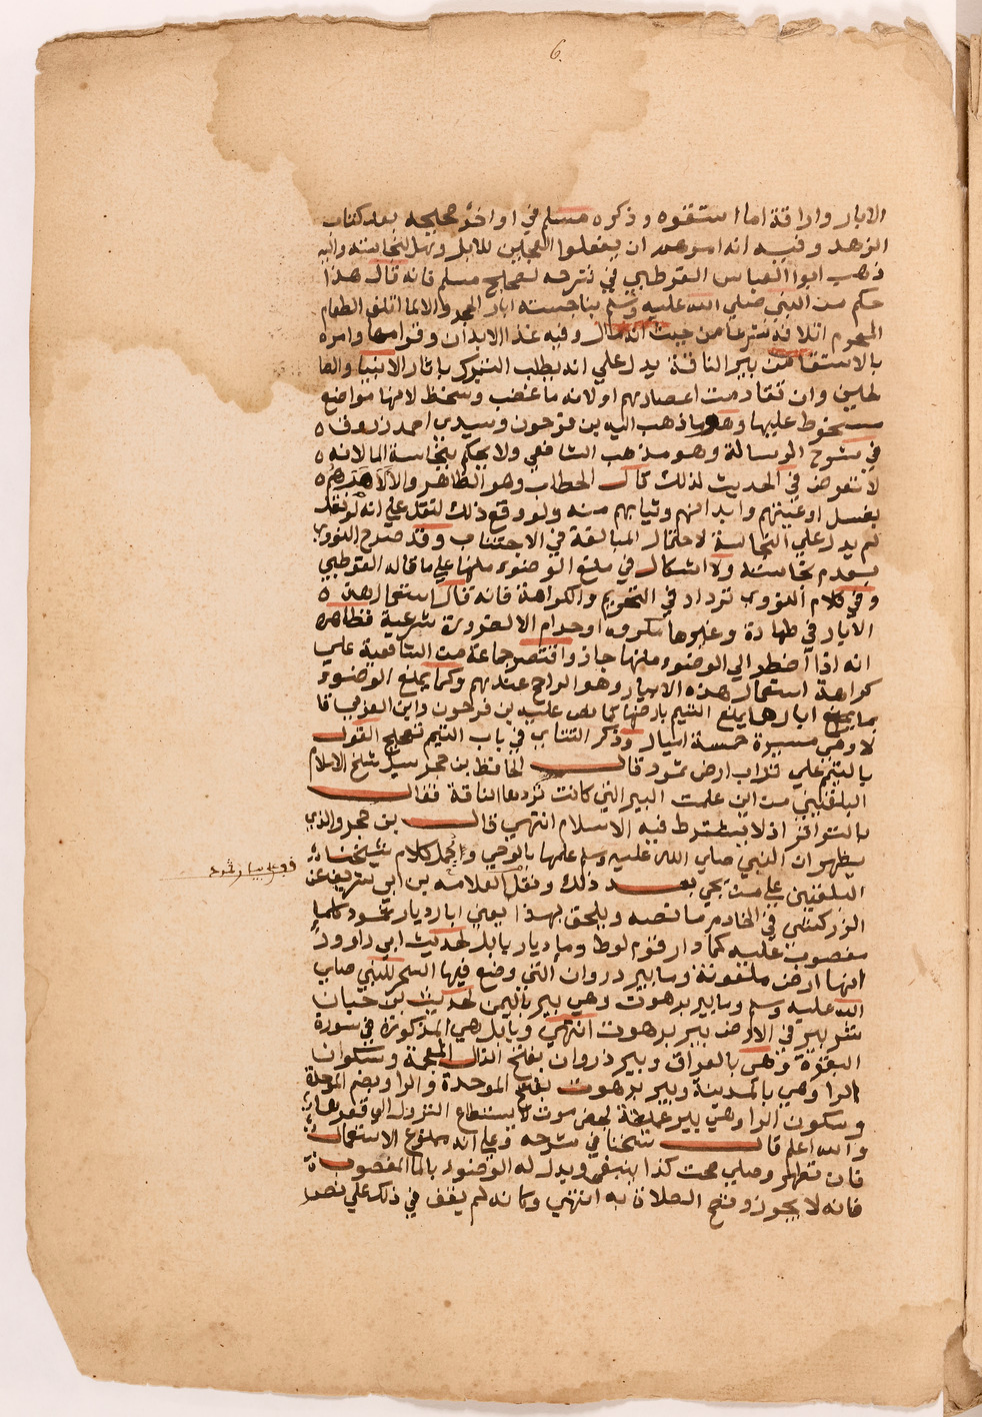 6
الابار واراقة اما استقوه وذكره مسلم في اواخر صحيحه بعد كتاب
الزهد وفيه انه امرهم ان يعلفوا العجين للابل وقيل لنجاسته واليه
ذهب ابوا العباس القرطبي في شرحه لصحيح مسلم فانه قال هذا
حكم من النبي صلي الله عليه وسلم بنجاسته ابار الحجر والالما اتلف الطعام
المحرم اتلافه شرعا من حيث انه مال وفيه غذا الابدان وقوامها وامره
بالاستقا من بير الناقة يدل علي انه يطلب التبرك باثار الانبيا والصا
لحين وان تقادمت اعصارهم اولانه ما غضب وسخط لانها مواضع
مسخوط عليها وهو ما ذهب اليه بن فرحون وسيدي احمد زروف
في شرح الرسالة وهو مذهب الشافعي ولا يحكم بنجاسة الما لانه
لا تعرض في الحديث لذلك قال الحطاب وهو الظاهر والالامرهم
بغسل اوعيتهم وابدانهم وثيابهم منه ولو وقع ذلك لنقل علي انه لو نقل
لم يدل علي النجاسة لاحتمال المبالغة في الاجتناب وقد صرح النووي
بعدم نجاسته ولا اشكال في منع الوضوء منها علي ما قاله القرطبي
وفي كلام النووي ترداد في التحريم والكراهة فانه قال استعمال هذه
الابار في طهارة وغيرها مكروه او حرام الا لضرورة شرعية فظاهره
انه اذا اضطر الي الوضوء منها جاز واقتصر جماعة من الشافعية علي
كراهة استعمال هذه الابيار وهو الراجح عندهم وكما يمنع الوضوء
بما ابارها يمنع التيمم بارضها كما نص عليه بن فرحون وابن العربي قا
لا وهي مسيرة خمسة اميال وذكر التتاي في باب التيمم تصحيح القول
بالتيمم علي تراب ارض ثمود قال الحافظ بن حجر سيل شيخ الاسلام
البلقيني من اين علمت البير التي كانت تردها الناقة فقال
بالتواتر اذ لا يشترط فيه الاسلام انتهي قال بن حجر والذي
يظهر ان النبي صلي الله عليه وسلم علمها بالوحي ويحمل كلام شيخنا
البلقيني علي من يجي بعد ذلك ونقل العلامه بن ابي شريف عن
الزركشي في الخادم ما نصه ويلحق بهذا يعني ابار ديار ثمود كلما
مغضوب عليه كما دار قوم لوط وما ديار بابل لحديث ابي داوود
انها ارض ملعونة وما بير دروان التي وضع فيها السحر للنبي صلي
الله عليه وسلم وما بير برهوت وهي بير باليمن لحديث بن حبان
شر بير في الارض بير برهوت انتهي وبابل هي المذكورة في سورة
البقرة وهي بالعراق وبير ذروان بفتح الذال المعجمة وسكون
الرا وهي بالمدينة وبير برهوت بفتح الموحدة والرا وبضم الموحدة
وسكون الرا وهي بير عميقة بحضرموت لا يستطاع النزول الي قعرها
والله اعلم قال شيخنا في شرحه وعلي انه ممنوع الاستعمال
فان تطهر وصلي صحت كذا ينبغي ويدل له الوضوء بالما المغصوب
فانه لا يجوز وتصح الصلاة به انتهي وكانه لم يقف في ذلك علي نص